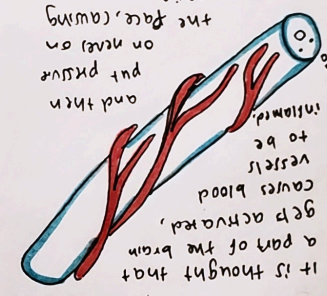 It is thought that
a part of the brain
gets activated,
causes blood
vessels
to be
inflamed.
and then
put pressure
on nerves on
the face, causing